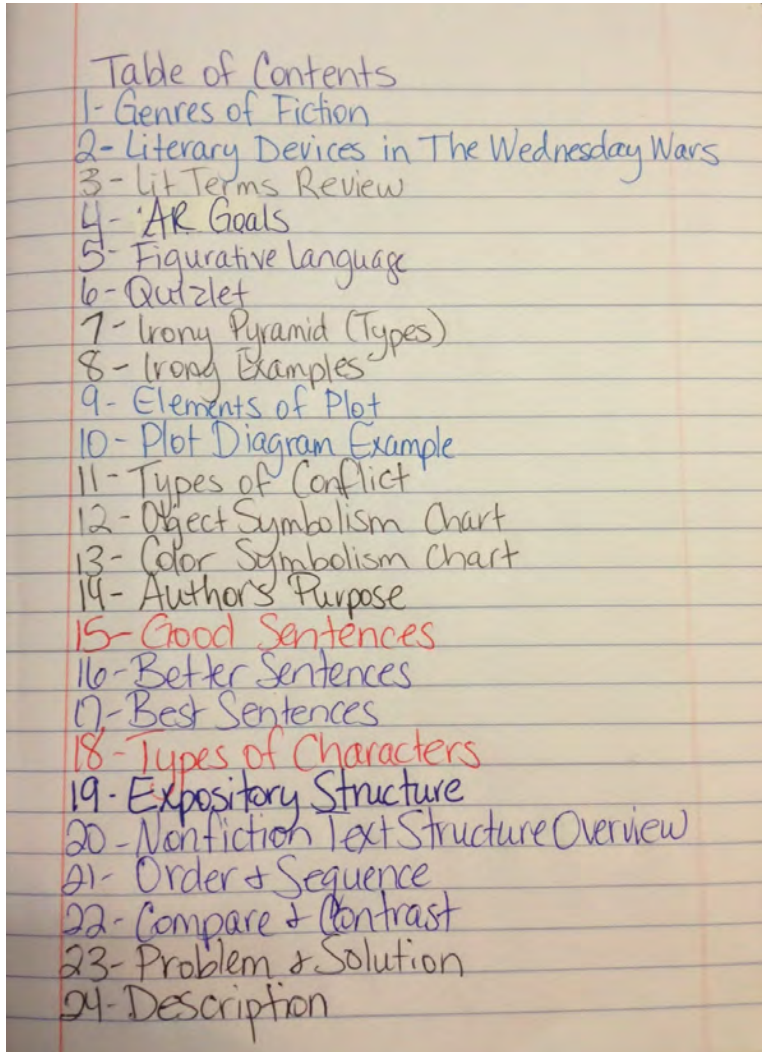 Table of Contents
1- Genres of Fiction
2- Literary Devices in The Wednesday Wars
3- Lit Terms Review
4- AR Goals
5- Figurative Language
6- Quizlet
7- Irony Pyramid (Types)
8- Irony Examples
9- Elements of Plot
10- Plot Diagram Example
11- Types of Conflict
12- Object Symbolism Chart
13- Color Symbolism Chart
14- Author's Purpose
15- Good Sentences
16- Better Sentences
17- Best Sentences
18- Types of Characters
19- Expository Structure
20- Nonfiction Text Structure Overview
21- Order & Sequence
22- Compare & Contrast
23- Problem & Solution
24- Description